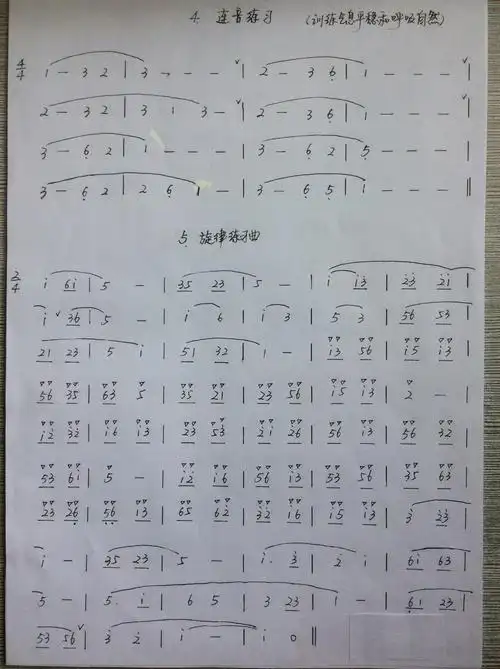 4. 连音练习 (训练气息平稳和呼吸自然)
4/4 1 - 3 2 | 3 - - - | 2 - 3 6 | 1 - - - |
2 - 3 2 | 3 1 3 - | 2 - 3 6 | 1 - - - |
3 - 6 2 | 1 - - - | 3 - 6 2 | 5 - - - |
3 - 6 2 | 2 6 1 - | 3 - 6 5 | 1 - - - ‖
5. 旋律练习曲
2/4 i 6i | 5 - | 35 23 | 5 - | i i3 | 23 2i |
i 36 | 5 - | i 6 | i 3 | 5 3 | 56 53 |
21 23 | 5 i | 51 32 | 1 - | i3 56 | i5 i3 |
56 35 | 63 5 | 35 21 | 23 56 | i5 i3 | 2 - |
i2 32 | i6 i3 | 23 53 | 2i 26 | 56 i3 | 56 32 |
53 6i | 5 - | i2 i6 | 56 i3 | 53 56 | 35 63 |
23 26 | 56 13 | 65 62 | 32 16 | i5 i3 | 3 23 |
i - | 35 23 | 5 - | i. 3 | 2 i | 6i 63 |
5 - | 5. i | 6 5 | 3 23 | 1 - | 61 23 |
53 56 | 3 2 | i - | i 0 ‖